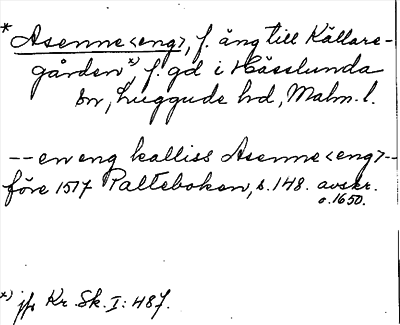 * Asenne<eng>, f. äng till Källare-
gården *), f. gd i Hässlunda
sn, Luggude hd, Malm. l.
-- en eng kalliss Asenne<eng> --
före 1517 Palteboken, s. 148. avskr.
o. 1650.
*) jfr Kr. Sk. I: 487.